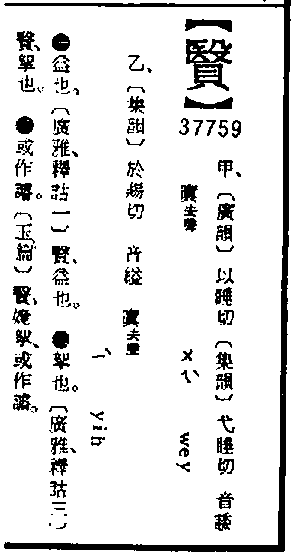 【贀】
37759
甲、〔廣韻〕以睡切〔集韻〕弋睡切 音
寘去聲 ㄨㄟˋ wey
乙、〔集韻〕於賜切 音縊 寘去聲
ㄧˋ yih
㊀益也。〔廣雅、釋詁一〕贀、益也。●挐也。〔廣雅、釋詁三〕
贀、挐也。●或作。〔玉篇〕贀、挐、或作。